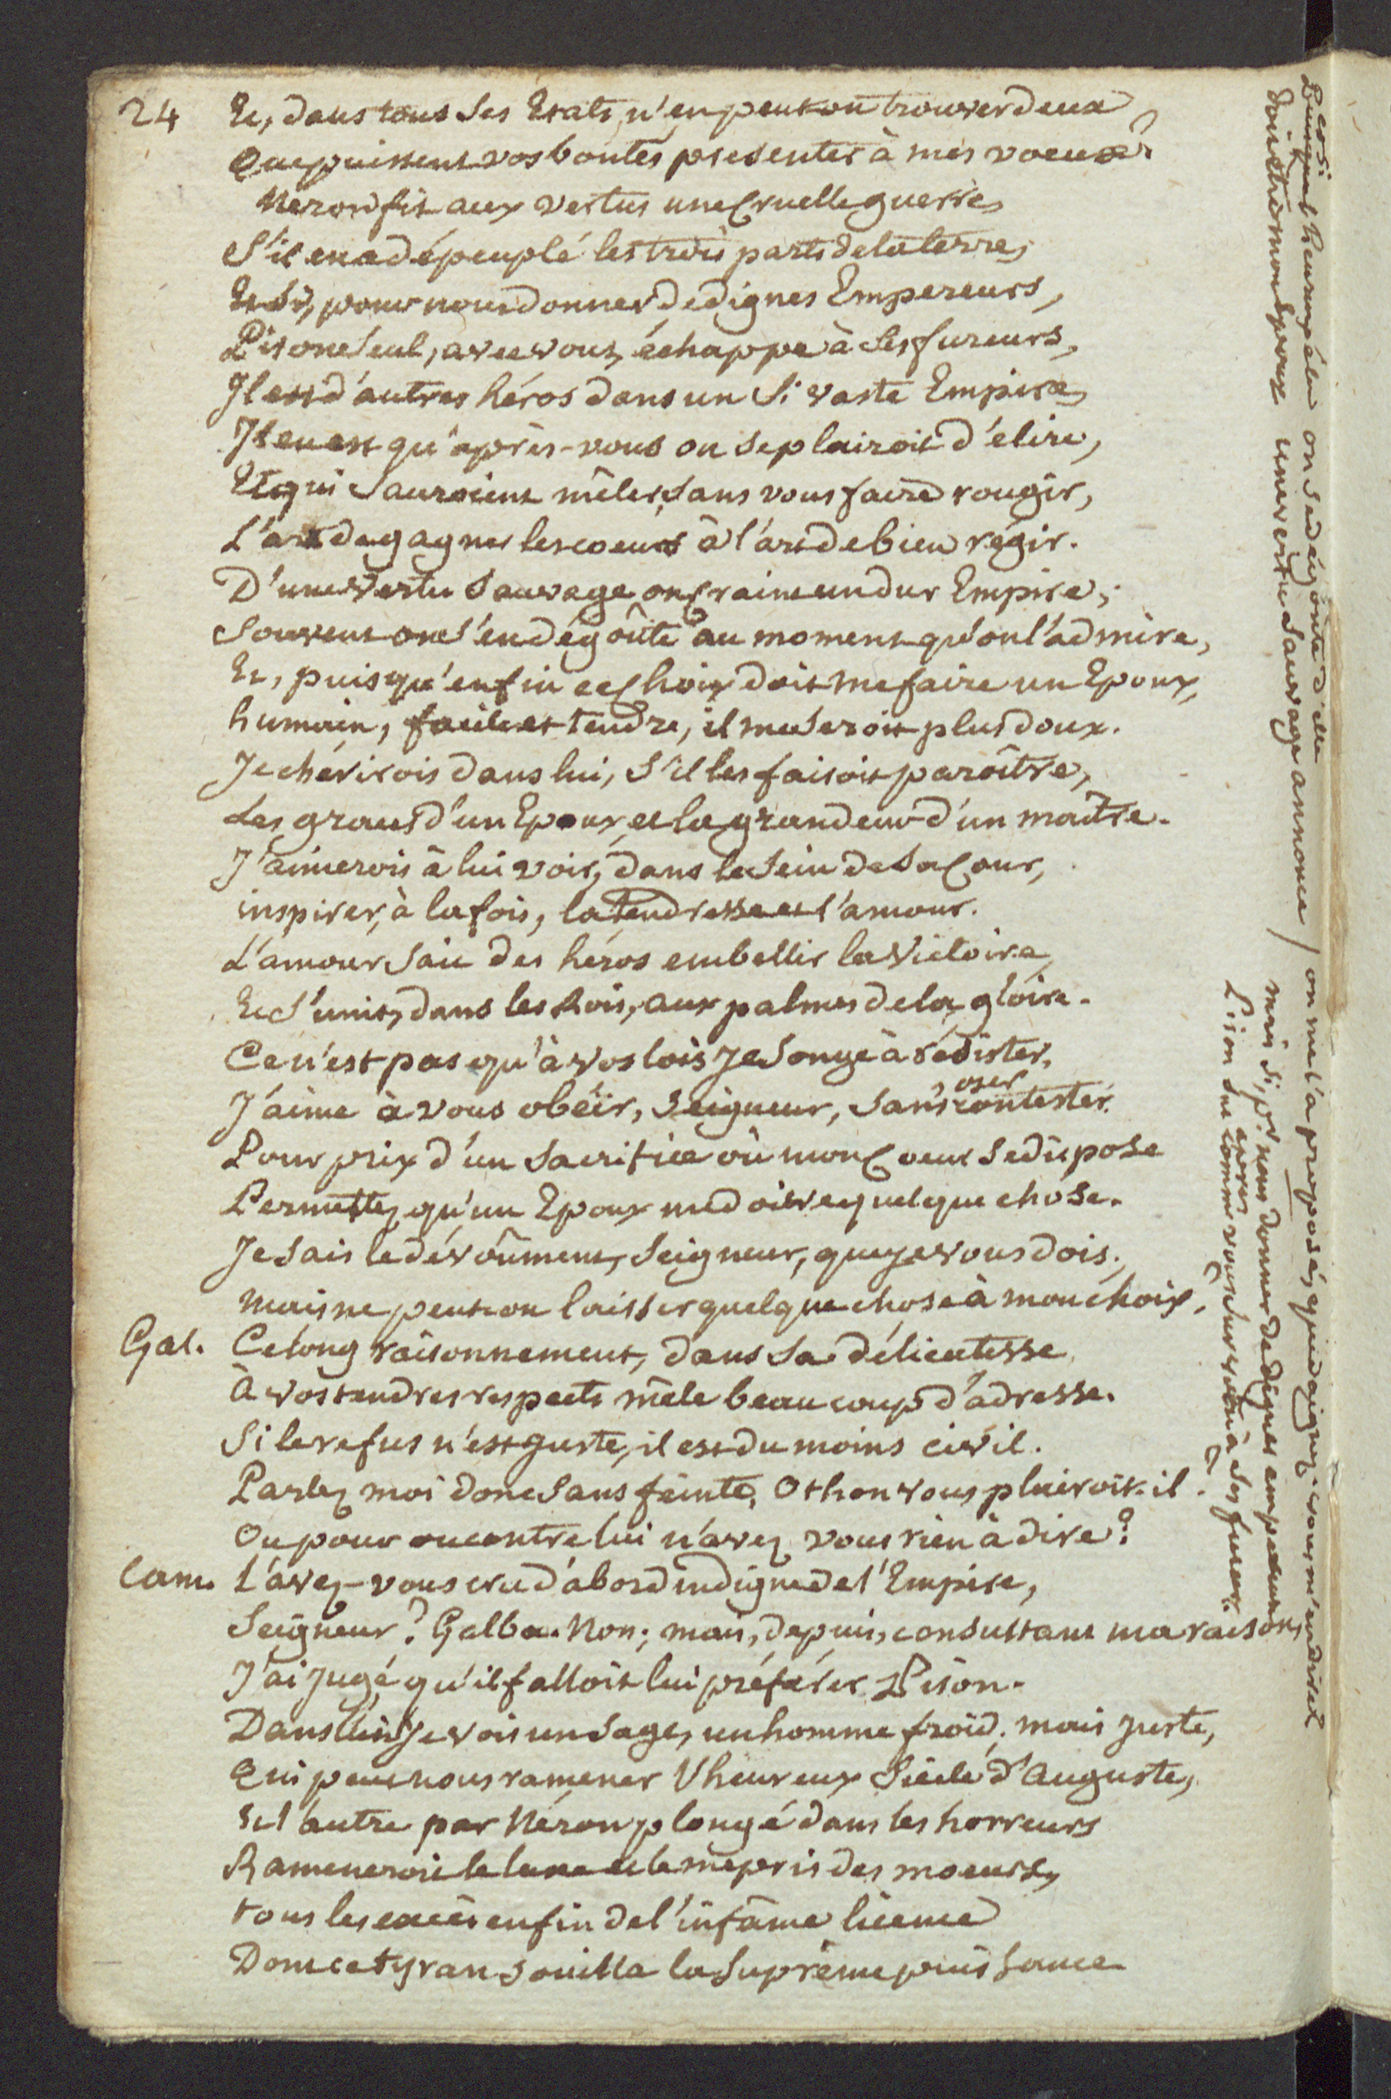 24 Et, dans tous ses Etats, n'en peut-on trouver deux
Que puissent vos bontés presenter à mes voeux?
Neron fit aux vertus une Cruelle guerre,
S'il en a dépeuplé les trois parts de la terre,
Et si, pour nous donner de dignes Empereurs,
Pison seul, avec vous, échappe à ses fureurs,
Il est d'autres héros dans un si vaste Empire,
Il en est qu'après-vous on se plairoit d'élire,
Et qui sauroient mêler, sans vous faire rougir,
L'art de gagner les coeurs à l'art de bien régir.
D'une vertu sauvage on Craint un dur Empire;
Souvent on s'en dégoûte au moment qu'on l'admire,
Et, puisqu'enfin ce Choix doit me faire un Epoux,
humain, facile et tendre, il me seroit plus doux.
Je chérirois dans lui, s'il les faisoit paroître,
Les graces d'un Epoux et la grandeur d'un maître.
J'aimerois à lui voir, dans le sein de sa Cour,
inspirer, à la fois, la tendresse et l'amour.
L'amour sait des héros embellir la Victoire,
Et s'unit, dans les Rois, aux palmes de la gloire.
Ce n'est pas qu'à vos lois Je songe à résister,
J'aime à vous obéïr, Seigneur, sans oser contester.
Pour prix d'un sacrifice où mon Coeur se dispose
Permettez qu'un Epoux me doive quelque chose.
Je sais le dévoûment, Seigneur, que je vous dois;
mais ne peut-on laisser quelque chose à mon choix.
Gal. Ce long raisonnement, dans sa délicatesse
à vos tendres respects mêle beaucoup d'adresse.
Si le refus n'est juste, il est du moins civil.
Parlez moi donc sans feinte, Othon vous plairoit-il?
Ou pour ou contre lui n'avez vous rien à dire?
Cam. L'avez-vous cru d'abord indigne de l'Empire,
Seigneur? Galba. Non; mais, depuis, consultant ma raison,
J'ai jugé qu'il falloit lui préférer Pison.
Dans lui Je vois un sage, un homme froid, mais juste,
Qui peut nous ramener l'heureux Siécle d'Auguste,
Et l'autre par Néron plongé dans les horreurs
Rameneroit le luxe et le mépris des moeurs,
tous les excès enfin de l'infâme licence
Dont ce tyran souilla la suprême puissance
on se dégoûte d'elle / on me l'a proposé, que daignez-vous m'en dire
dont mon Epoux une vertu sauvage annonce /
mais si, pr. nous donner de dignes empereurs
Pison seul comme vous survêcut à ses fureurs